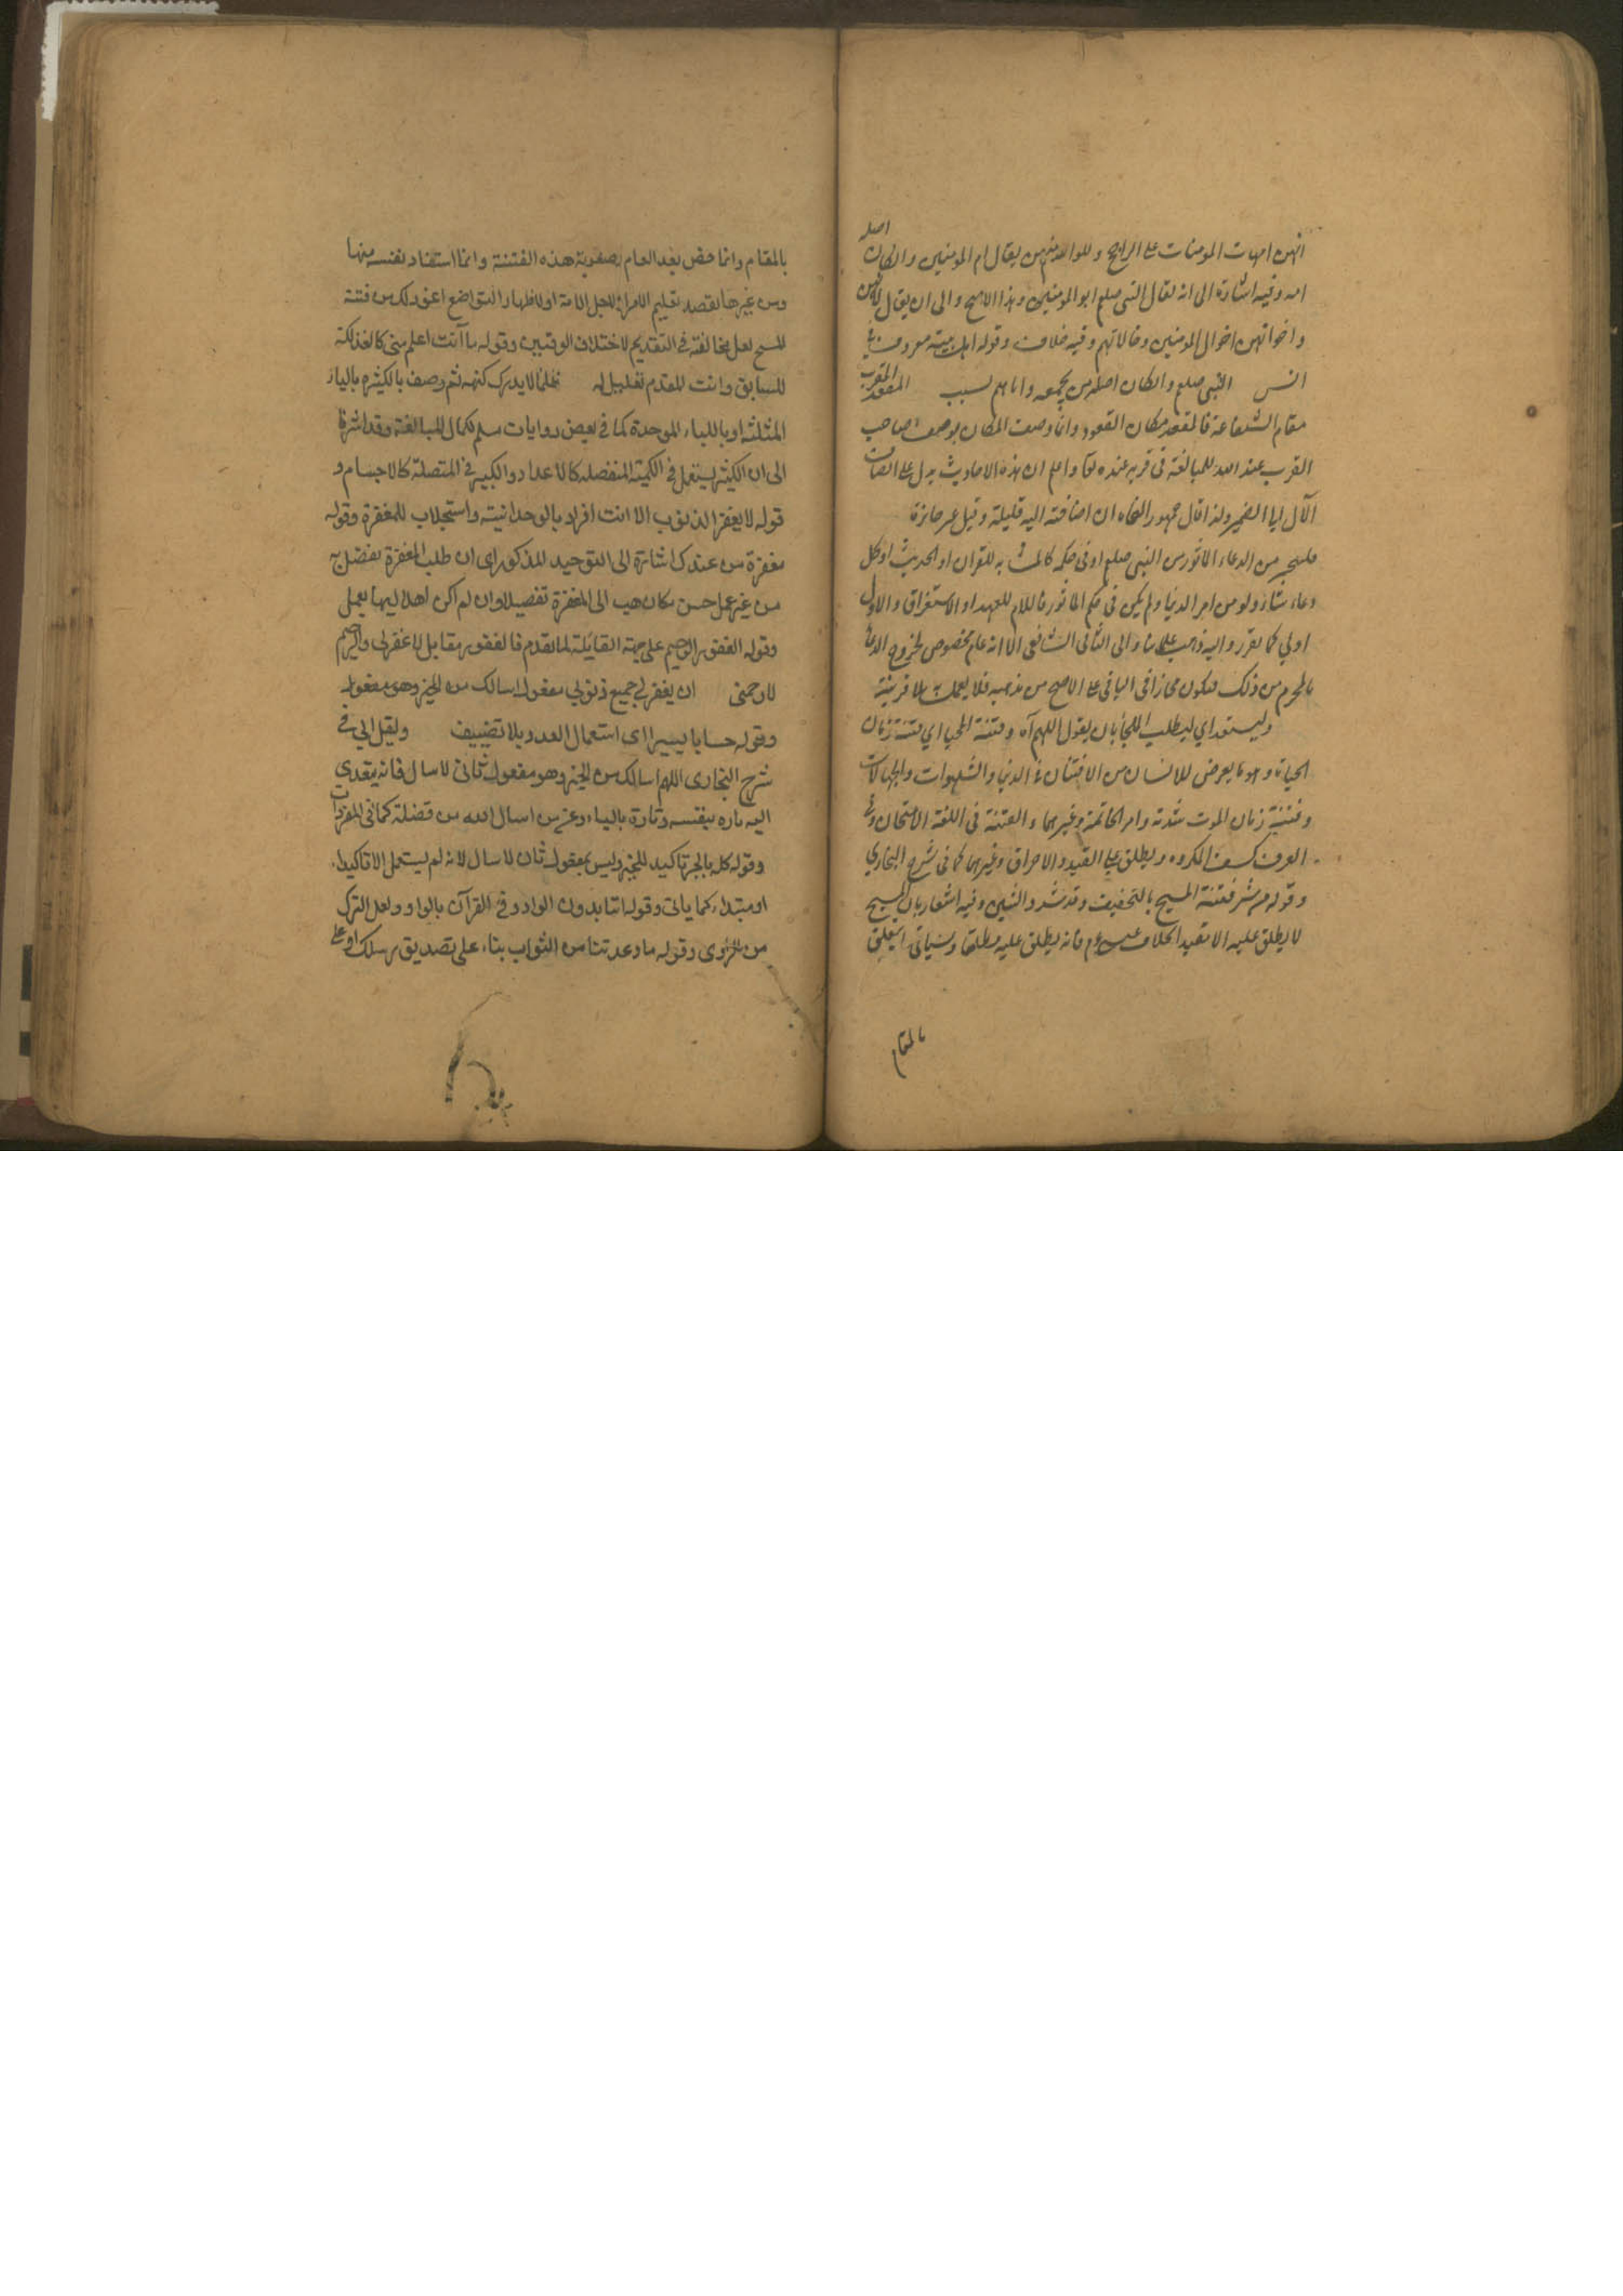 اصله
انهن امهات المومنات على الراجح وللواحدة منهن يقال ام المومنين والكان
امه وفيه اشارة الى انه يقال النبى صلعم ابو المومنين وهذا الاصح والى ان يقال
واخواتهن اخوال المومنين وخالاتهم وفيه خلاف وقوله اهل بيته معروف
انس النبى صلعم والكان اصله من يجمعه واياهم نسب المقعد المقرب
مقام الشفاعة فالمقعد مكان القعود وانما وصف المكان بوصف صاحب
القرب عند الله للمبالغة فى قربه عنده تعا واعلم ان هذه الاحاديث يدل على اضافة
الآل الى الضمير ولذا قال جمهور النحاه ان اضافته اليه قليلة وقيل غير جائزة
من الدعاء الماثور من النبى صلعم او فى حكمه كالمشابه للقران او الحديث او كل
دعاء شاء ولو من امر الدنيا ولم يكن فى حكم الماثور فاللام للعهد او الاستغراق والاول
اولى كما تقرر واليه ذهب والى الثانى الشافعى الا انه عام مخصوص لخروج الدعاء
بالمحرم من ذلك فيكون مجازا فى الباقى على الاصح من مذهبه فلا يعمل بلا قرينة
وليستعذ اي ليطلب اللجأ بان يقول اللهم آه وفتنة المحيا اي فتنة زمان
الحياة وهو ما يعرض للانسان من الافتتان فى الدنيا والشهوات والجهالات
وفتنة زمان الموت شدته وامر الخاتمة وغيرهما والفتنة فى اللغة الامتحان وفى
العرف كشف المكروه ويطلق على القيد والاحراق وغيرهما كما فى شرح البخاري
وقوله من شر فتنة المسيح بالتخفيف وقد شدد والشين وفيه اشعار بان المسيح
لا يطلق عليه الا مقيد الخلاف عيسى عم فانه يطلق عليه مطلقا وسياتى ما يتعلق
بالمقام
بالمقام وانما خص بعد العام لصعوبة هذه الفتنة وانما استفاد نفسه منها
ومن غيرها لقصد تعليم الامراة لاجل الامة او لاظهار التواضع اعنى ذلك من فتنة
المسيح لعل مخالفته فى التقديم لاختلاف الوقتين وقوله ما انت اعلم منى كالفذلكة
للسابق وانت المقدم تعليل له ظلما لا يدرك كنهه ثم وصف بالكثيره بالياء
المثلثة او بالباء الموحدة كما فى بعض روايات مسلم لكمال المبالغة وقد اشرنا
الى ان الكثير يستعمل فى الكمية المنفصلة كالاعداد والكبير فى المتصلة كالاجسام و
قوله لا يغفر الذنوب الا انت افراد بالوحدانيته واستجلاب للمغفرة وقوله
مغفرة من عندك اشارة الى التوحيد المذكور اى ان طلب المغفرة بفضل به
من غير عمل حسن مكان هب الى المغفرة تفضيلا وان لم اكن اهلا لها بعملى
وقوله الغفور الرحيم على جهة المقابلة لما تقدم فالغفور مقابل لاغفرلى والرحيم
لارحمنى ان يغفر لى جميع ذنوبى مفعول اسالك من الخير وهو مفعول
وقوله حسابا يسيرا اى استعمال العدد بلا تضييف ولقيل الى فى
شرح البخارى اللهم اسالك من الخير وهو مفعول ثانى لاسال فانه يتعدى
اليه تاره بنفسه وتارة بالباء وعن من اسال الله من فضلة كما فى المفردات
وقوله كله بالجر تاكيد للخير وليس بمفعول ثان لاسال لانه لم يستعمل الا تاكيدا
او مبتداء كما ياتى وقوله اتنا بدون الواو وفى القرآن بالواو ولعل الترك
من الراوى وقوله ما وعدتنا من الثواب بناء على تصديق رسلك او على